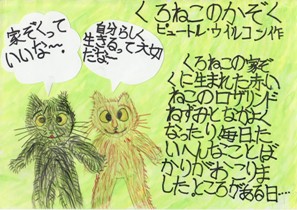 くろねこのかぞく
ピュートレ・ウイルコン作
家ぞくって
いいな〜。
自分らしく
生きるって大切
だな〜
くろねこの家ぞ
くに生まれた赤い
ねこのロザリンド
ねずみとなかよく
なったり毎日た
いへんなことば
かりがおこりま
したところがある日…